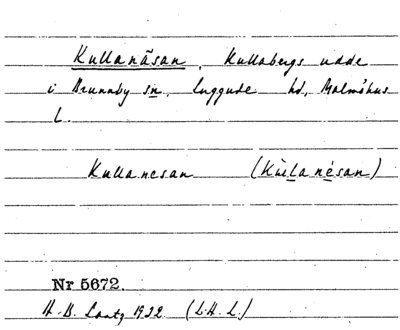 Kullanäsan, Kullabergs udde
i Brunnby sn, Luggude hd, Malmöhus
L.
Kullanesan (Kullanésan)
Nr 5672.
H. B. 1922 (L.H.L.)